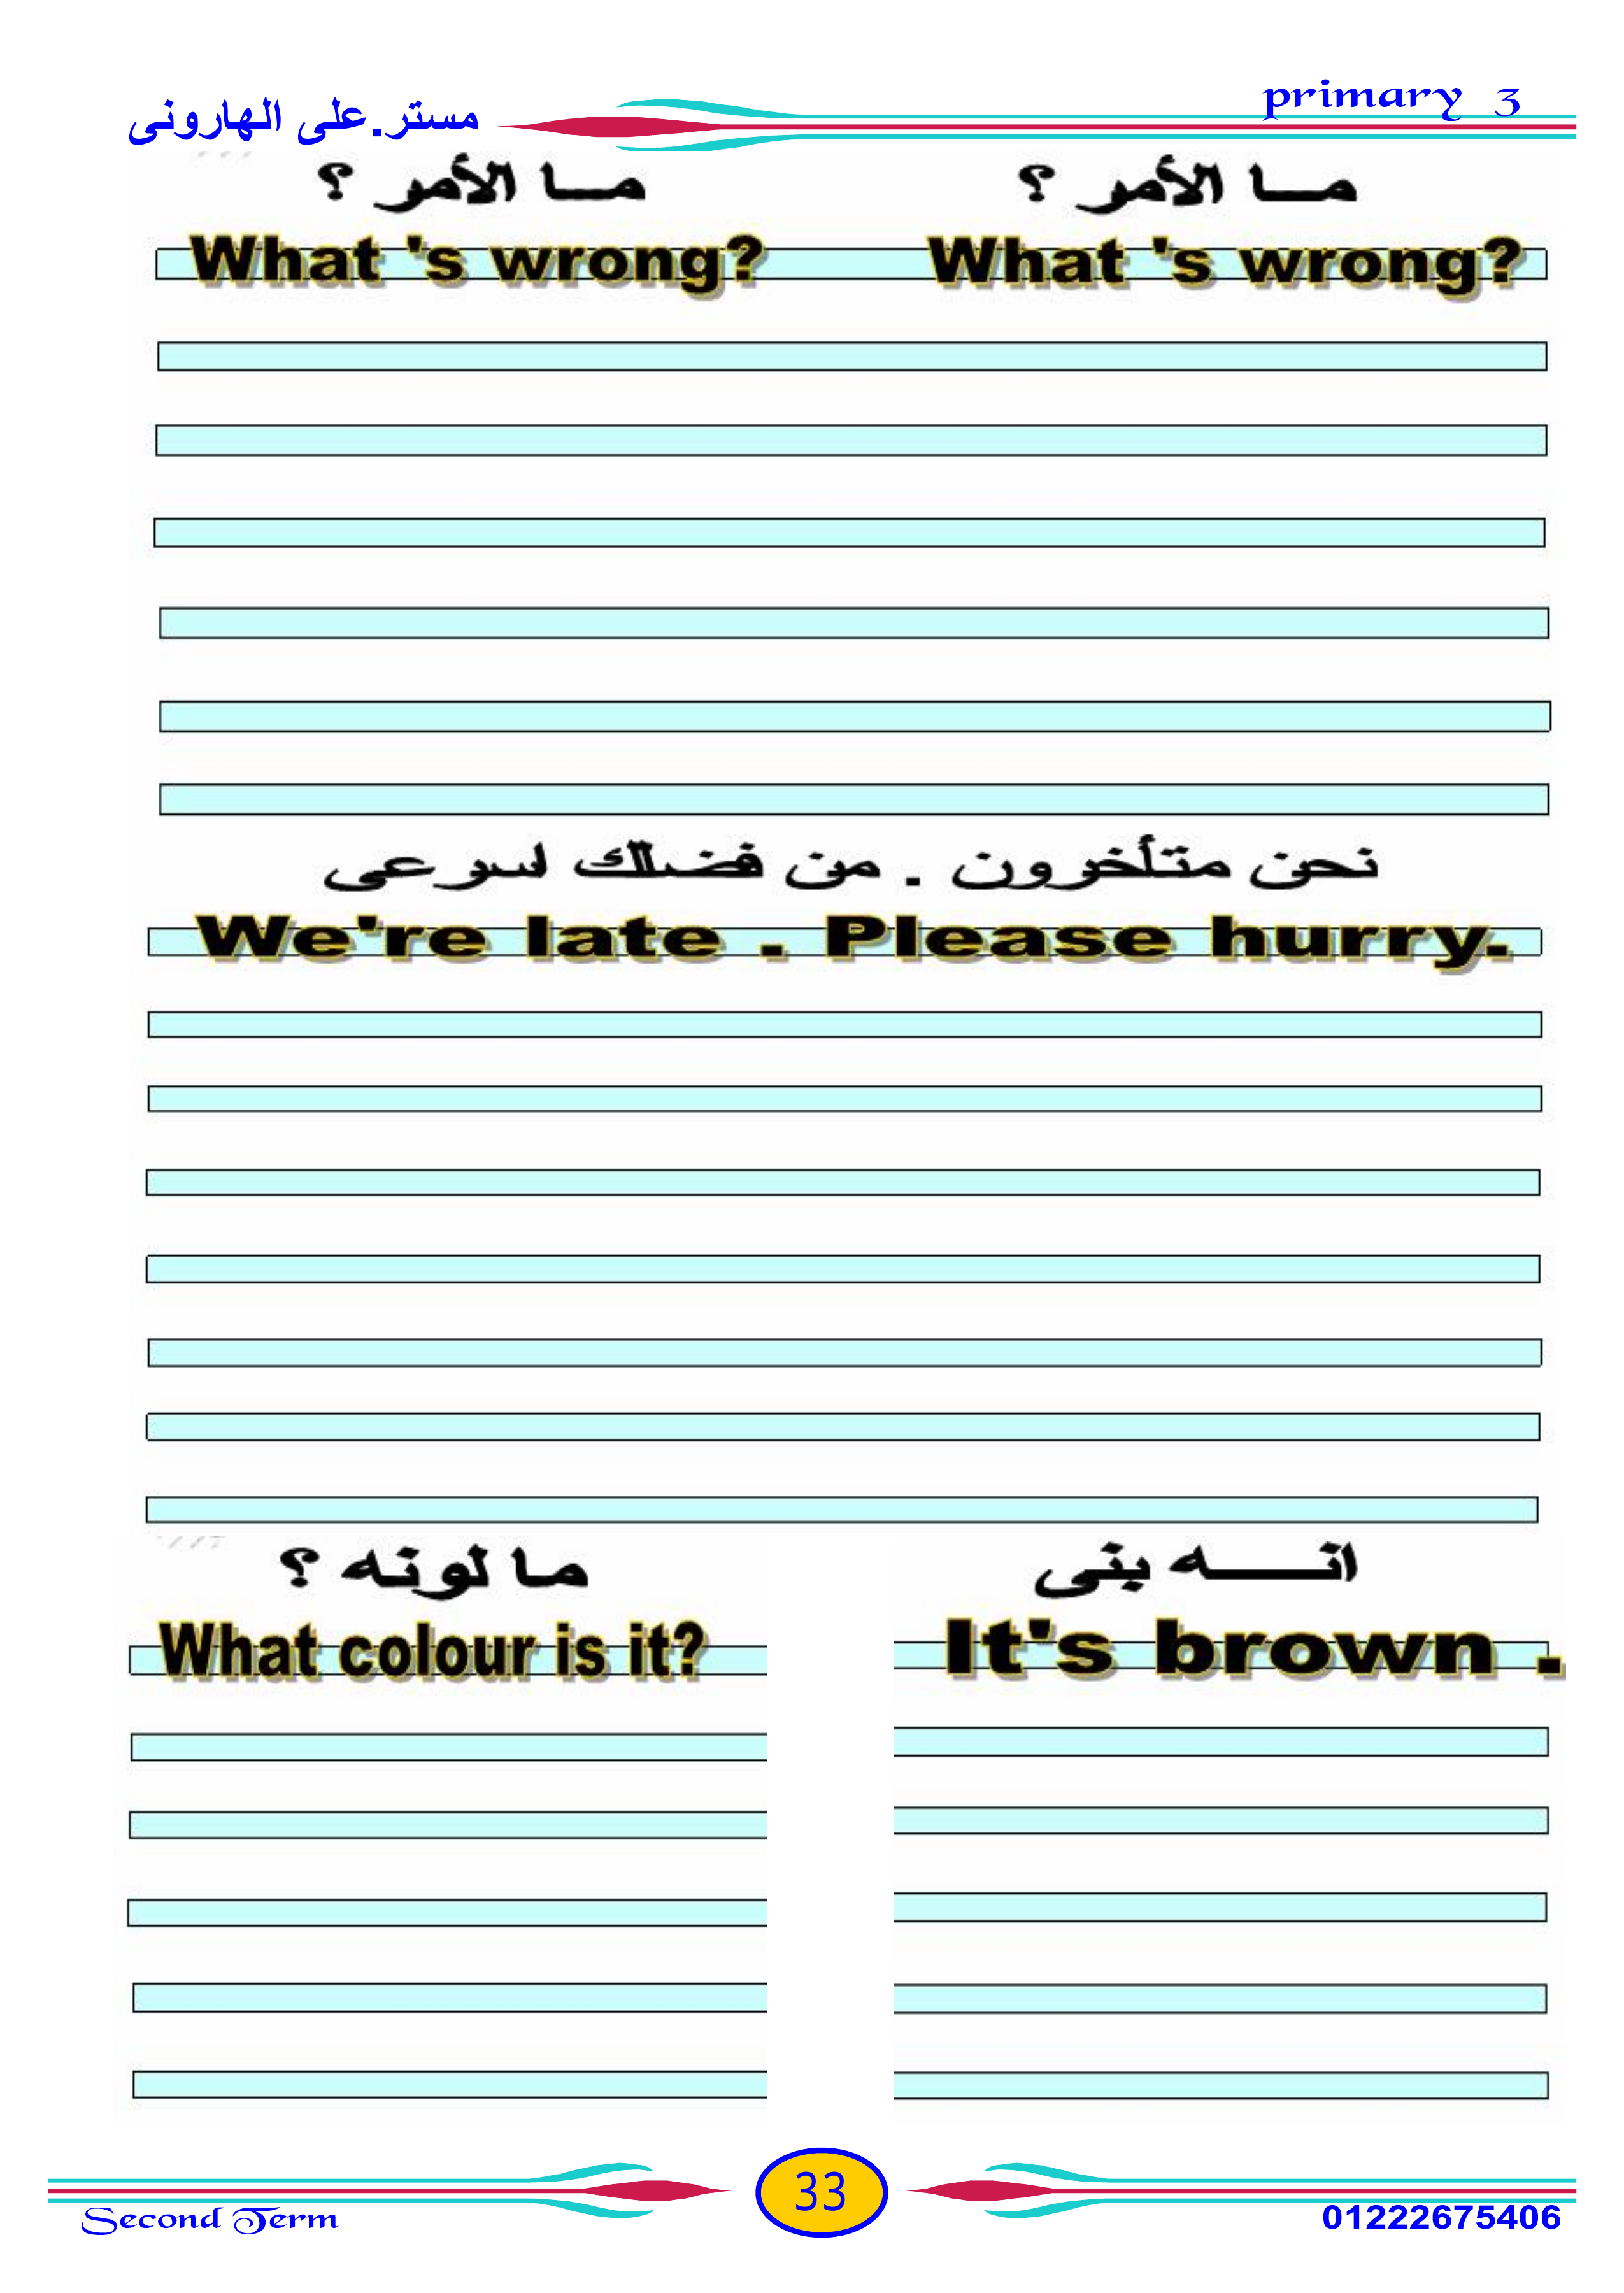 مستر.على الهارونى primary 3
ما الأمر ؟ ما الأمر ؟
What 's wrong? What 's wrong?
نحن متأخرون . من فضلك اسرعى
We're late . Please hurry.
ما لونه ؟ انه بنى
What colour is it? It's brown .
33
Second Term 01222675406